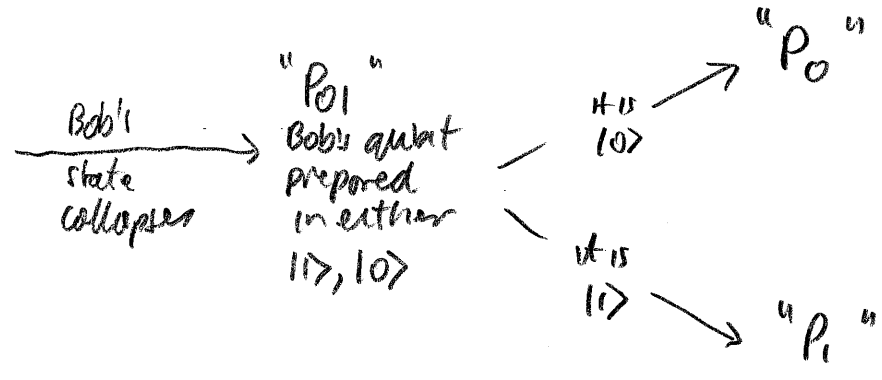 Bob's
state
collapses
"P01"
Bob's qubit
prepared
in either
|1>, |0>
it is
|0>
"P0"
it is
|1>
"P1"